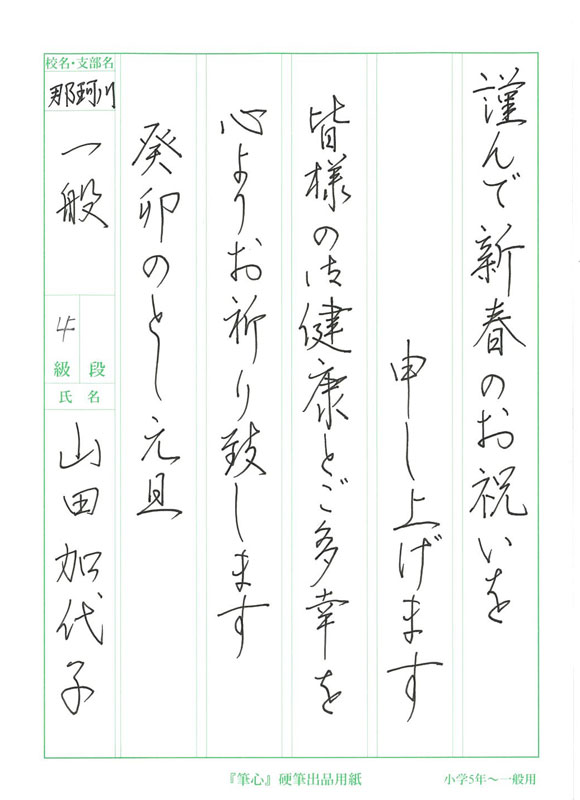 謹んで新春のお祝いを
申し上げます
皆様の御健康とご多幸を
心よりお祈り致します
癸卯のとし元旦
校名・支部名
那珂川
一般
4
級 段
氏名
山田加代子
『筆心』硬筆出品用紙
小学5年～一般用